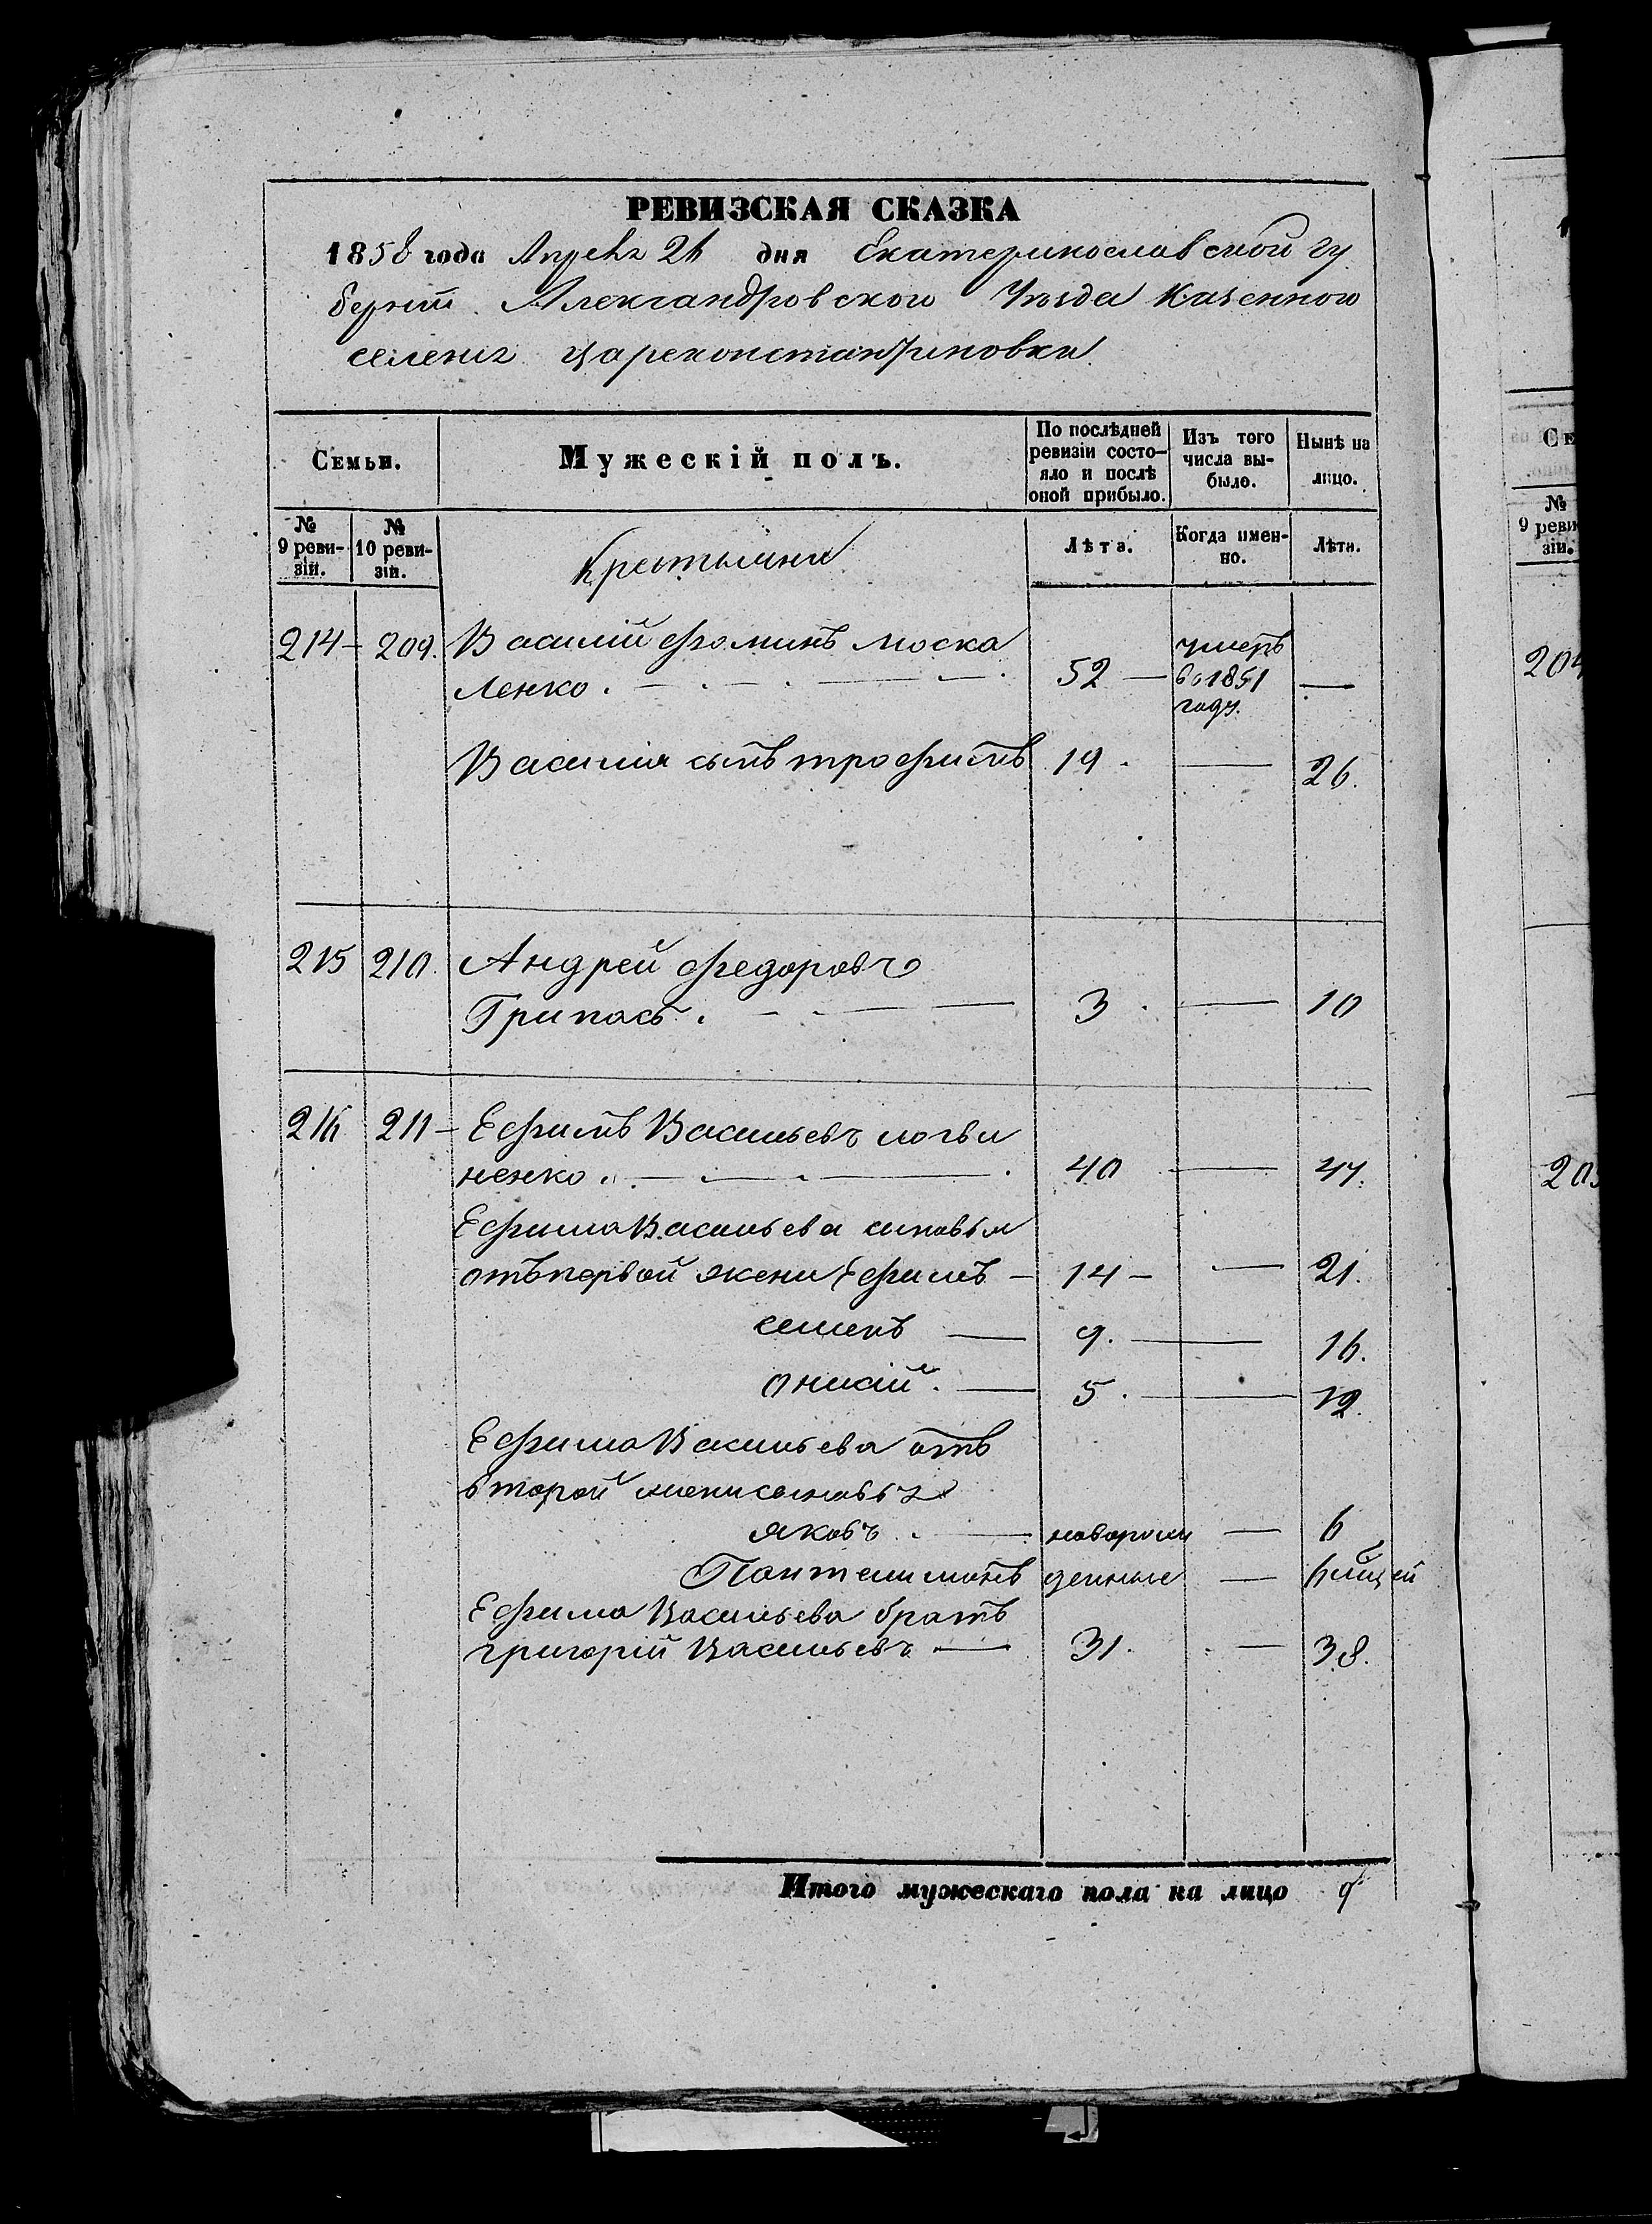 РЕВИЗСКАЯ СКАЗКА
1858 года Апреля 26 дня Екатеринославской гу
бернiи Александровского Уѣзда Казенного
селения Цареконстантиновки
Семьи.
Мужескій полъ.
По послѣдней ревизіи состо-яло и послѣ оной прибыло.
Изъ того числа вы-было.
Нынѣ на лицо.
№ 9 реви-зіи.
№ 10 реви-зіи.
Крестьяни
Лѣта.
Когда имен-но.
Лѣта.
214 - 209. Василій Фоминъ Моска
ленко. 52 — умеръ во 1851 году. —
Василія сынъ трофимъ 19. — 26.
215 210. Андрей Федоровъ
Грипасъ. 3. — 10
216 211 - Ефимъ Васильевъ логви
ненко. 40 — 47.
Ефима Васильева синовья
отъ первой жени Ефимъ — 14 — — 21.
семенъ — 9. — 16.
онисій. — 5. — 12.
Ефима Васильева отъ
второй жени сыновья
яковъ. — новорож — 6
Пантелимонъ денные — 6
Ефима Васильева братъ
григорій Васильевъ — 31. — 38.
Итого мужескаго пола на лицо 9
С
№ 9 реви зіи.
204
205